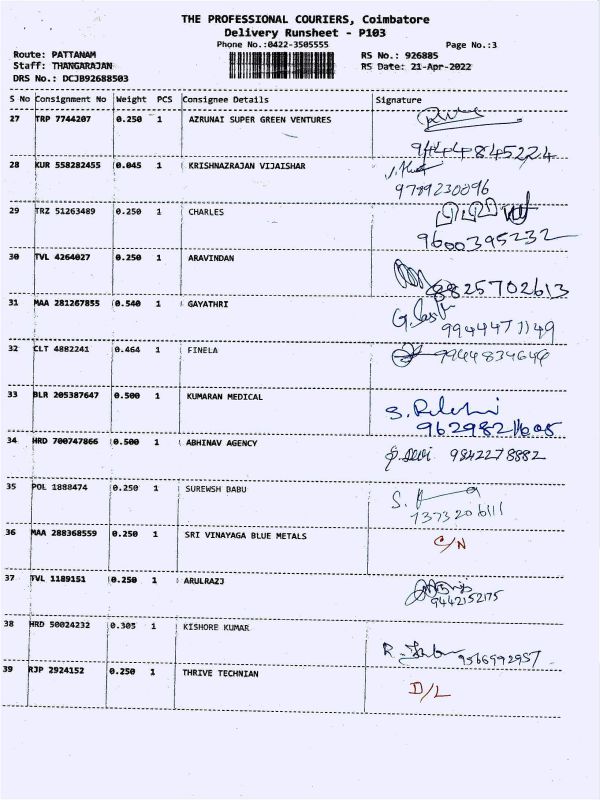 THE PROFESSIONAL COURIERS, Coimbatore
Delivery Runsheet - P103
Phone No.:0422-3505555
Page No.:3
Route: PATTANAM
RS No.: 926885
Staff: THANGARAJAN
RS Date: 21-Apr-2022
DRS No.: DCJB92688503
S No Consignment No Weight PCS Consignee Details Signature
27 TRP 7744207 0.250 1 AZRUNAI SUPER GREEN VENTURES
28 KUR 558282455 0.045 1 KRISHNAZRAJAN VIJAISHAR
9789230096
29 TRZ 51263489 0.250 1 CHARLES
9600395232
30 TVL 4264027 0.250 1 ARAVINDAN
8825702613
31 MAA 281267855 0.540 1 GAYATHRI
9944471149
32 CLT 4882241 0.464 1 FINELA
33 BLR 205387647 0.500 1 KUMARAN MEDICAL
34 HRD 700747866 0.500 1 ABHINAV AGENCY
9842278882
35 POL 1888474 0.250 1 SUREWSH BABU
36 MAA 288368559 0.250 1 SRI VINAYAGA BLUE METALS C/N
37 TVL 1189151 0.250 1 ARULRAZJ
9442152175
38 HRD 50024232 0.305 1 KISHORE KUMAR
9566992957
39 RJP 2924152 0.250 1 THRIVE TECHNIAN D/L